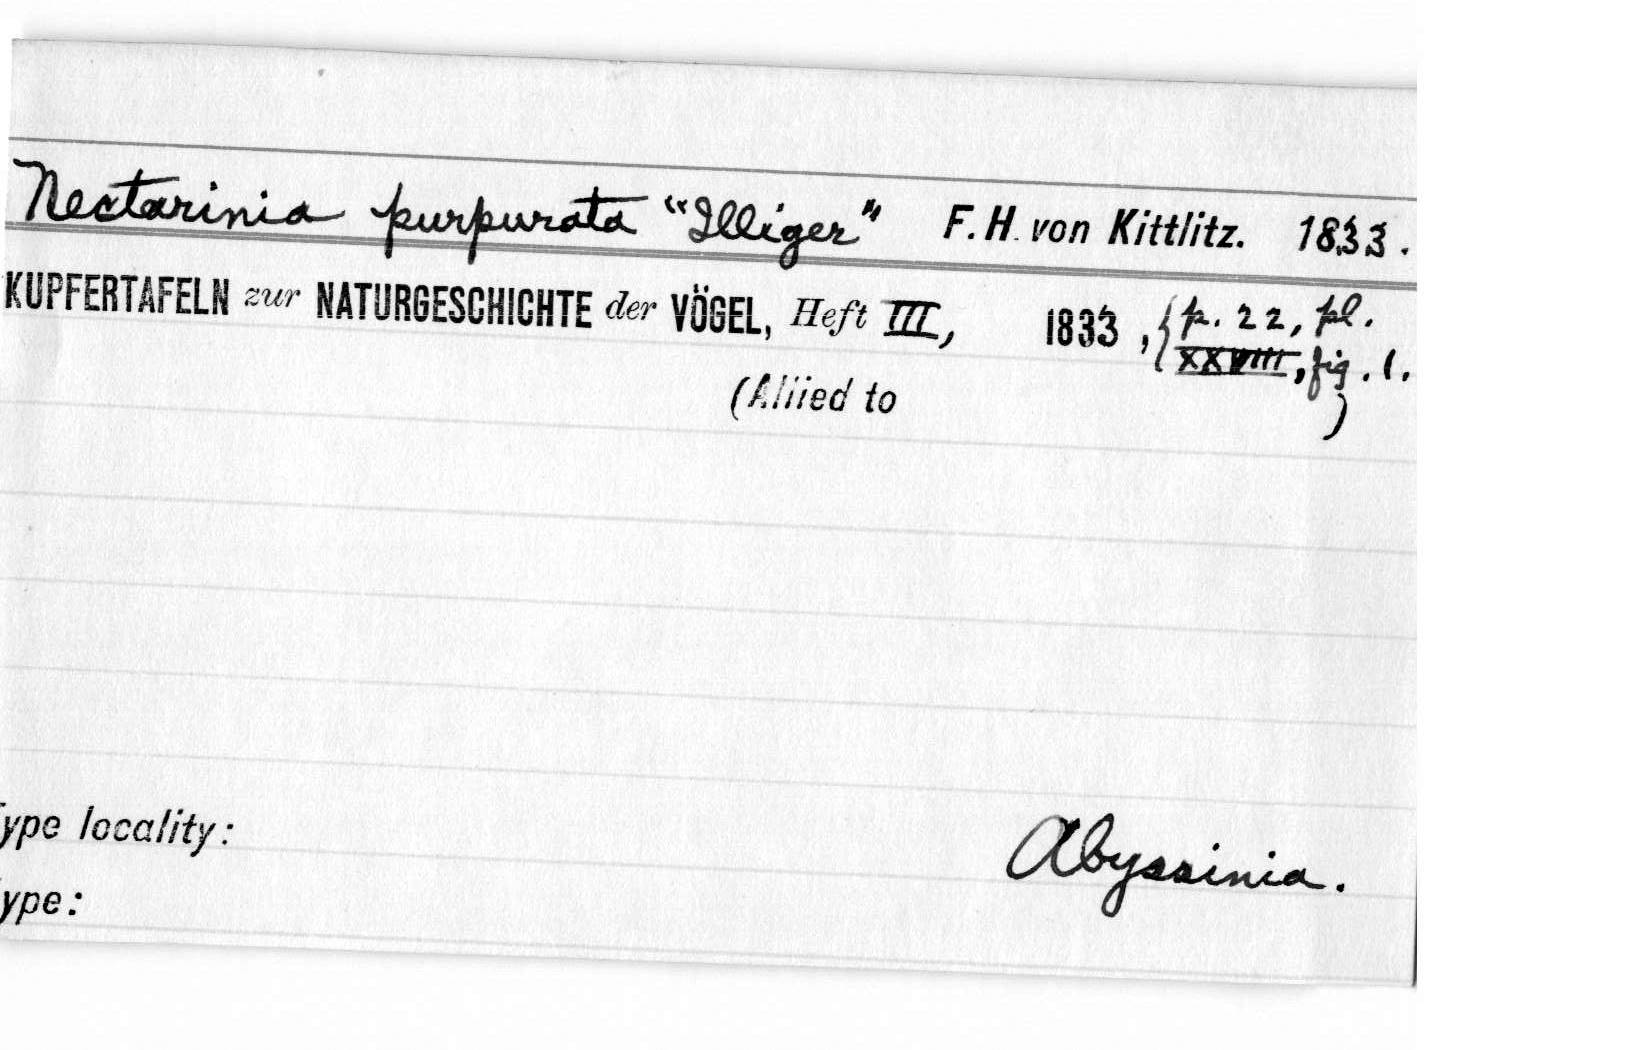 Nectarinia purpurata "Illiger" F. H. von Kittlitz. 1833.
KUPFERTAFELN zur NATURGESCHICHTE der VÖGEL, Heft III, 1833, { p. 22, pl.
XXVIII, fig. 1.
(Allied to )
ype locality: Abyssinia.
ype: